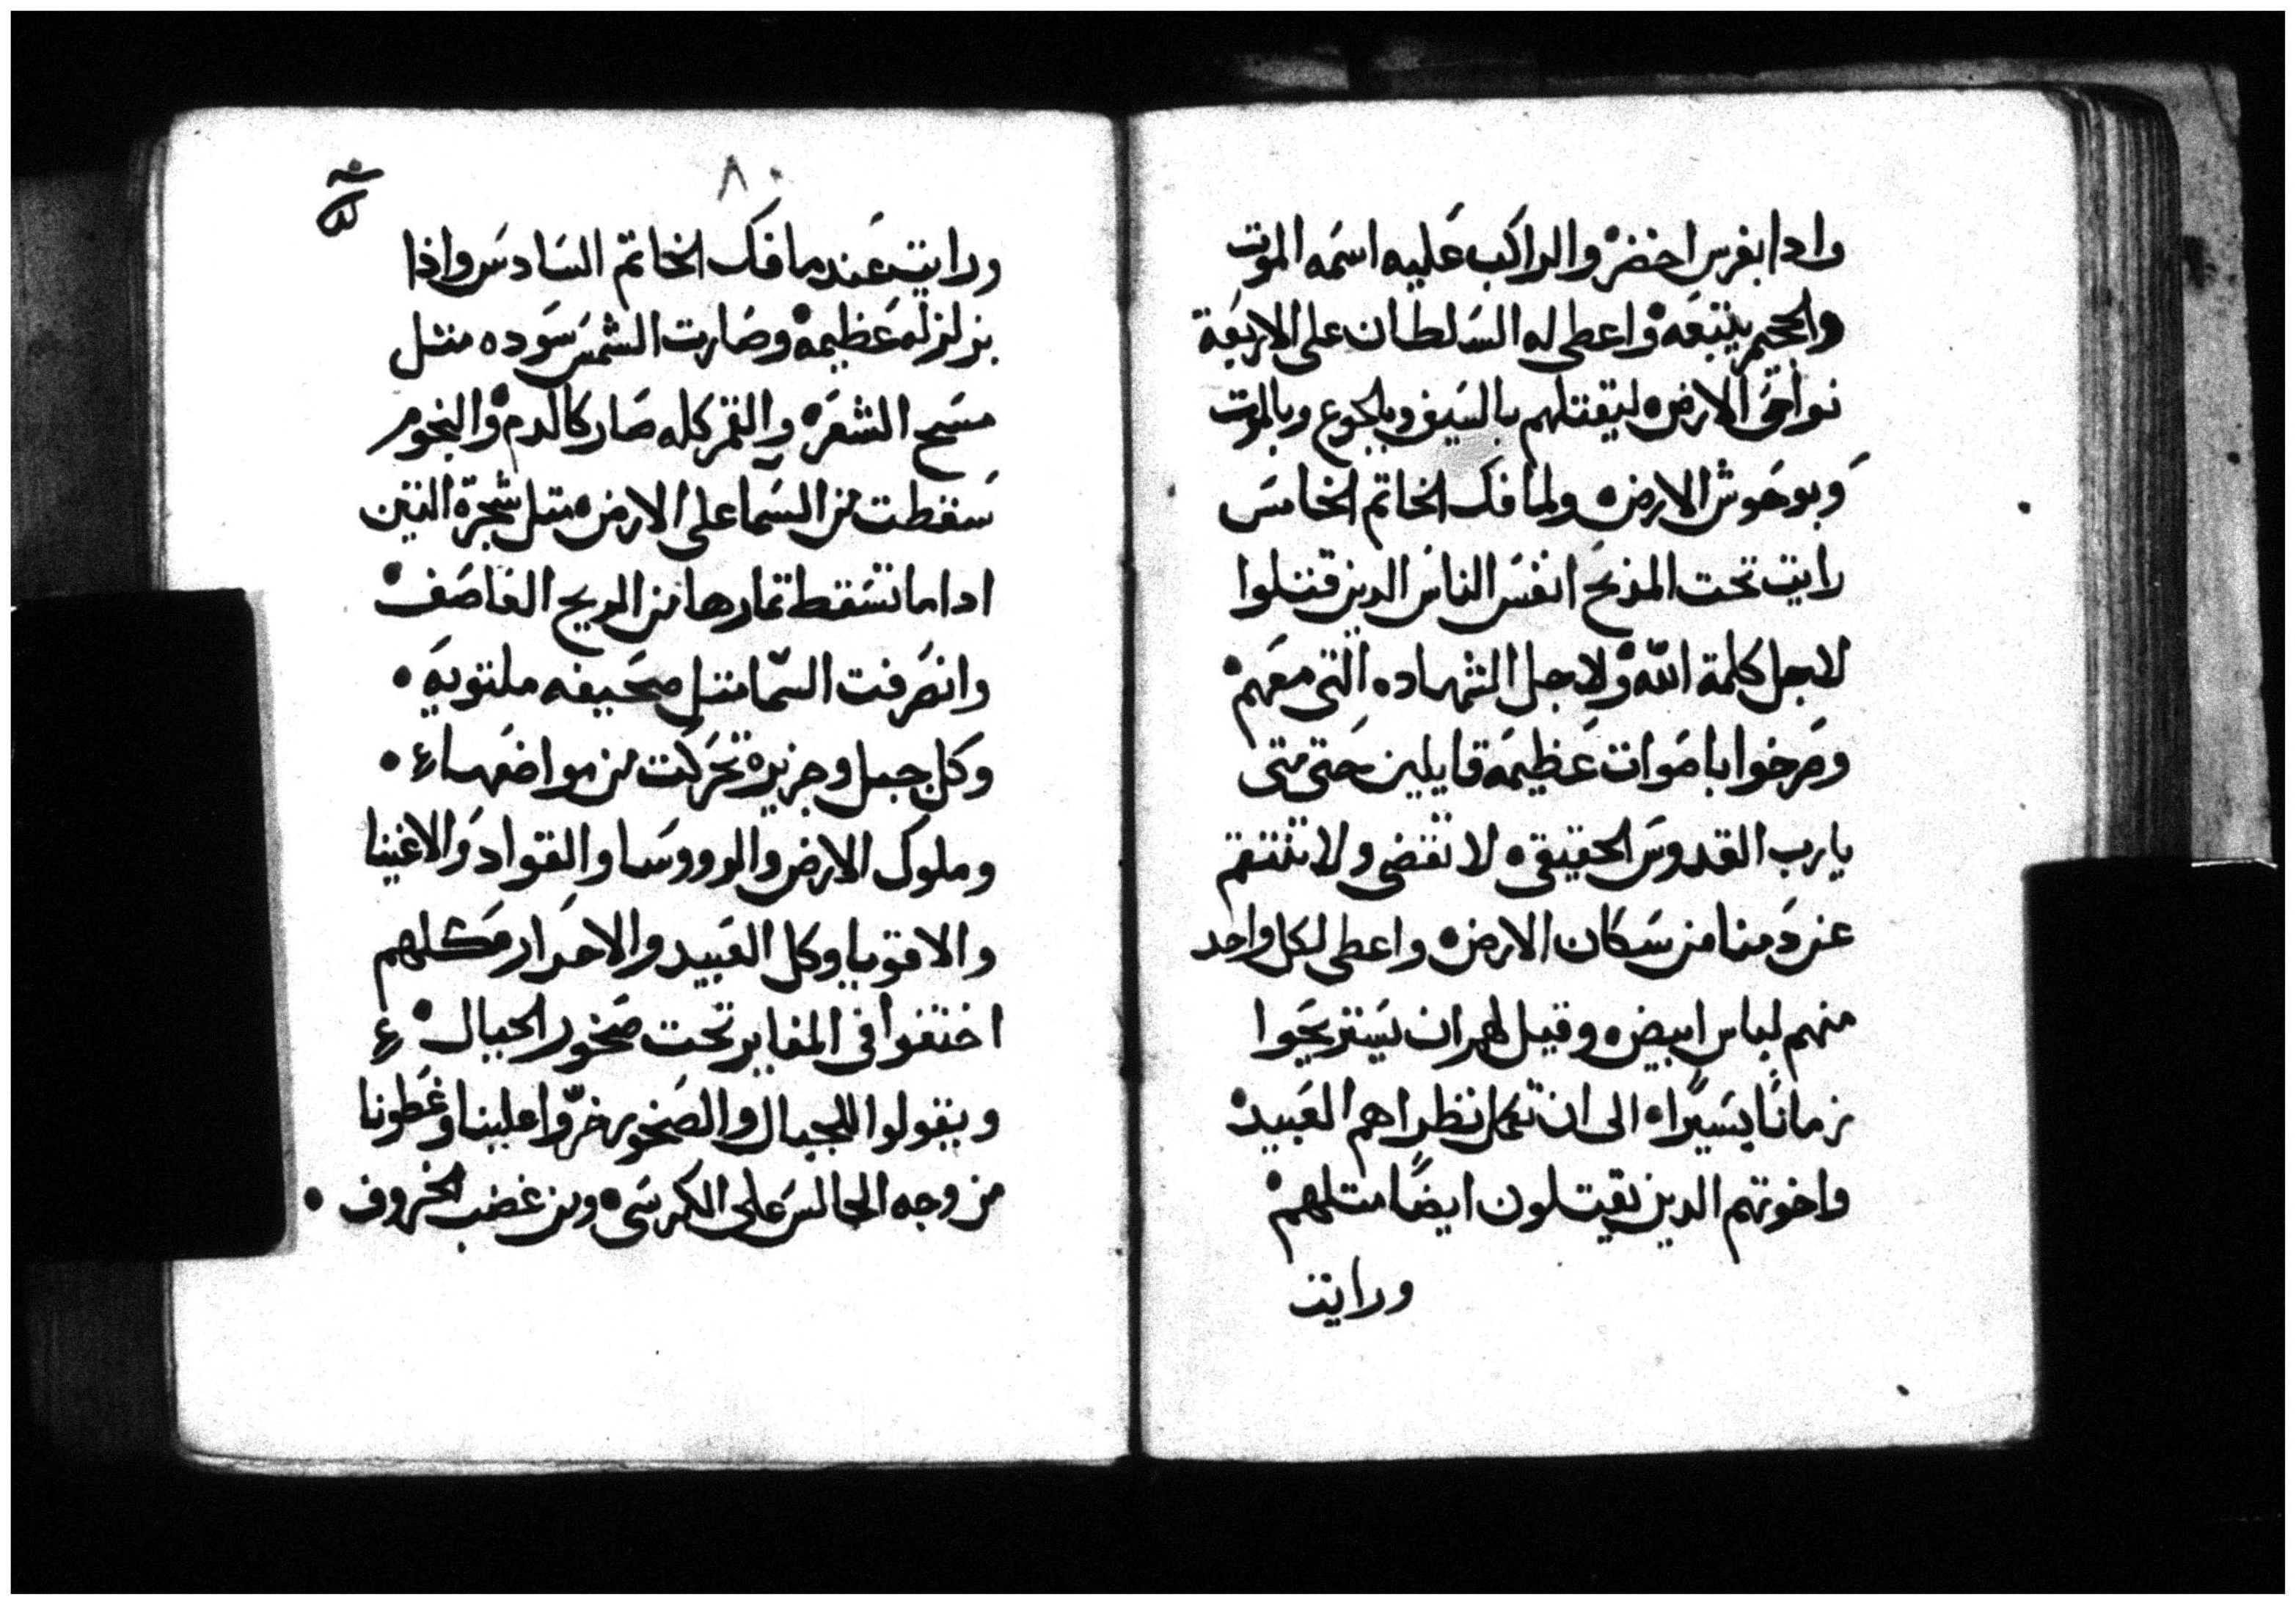 وادا بفرس اخضر والراكب عليه اسمه الموت
والجحيم يتبعه واعطى له السلطان على الاربعة
نواحى الارض ليقتلهم بالسيف وبالجوع وبالموت
وبوحوش الارض ولما فك الخاتم الخامس
رايت تحت المذبح انفس الناس الدين قتلوا
لاجل كلمة الله ولاجل الشهاده التى معهم
وصرخوا باصوات عظيمه قايلين حتى متى
يارب القدوس الحقيقى لا تقضى ولا تنتقم
عن دمنا من سكان الارض واعطى لكل واحد
منهم لباس ابيض وقيل لهم ان يستريحوا
زمانًا يسيرًا الى ان تكمل نظراهم العبيد
واخوتهم الدين يقتلون ايضًا متلهم
ورايت
٨٠
ورايت عندما فك الخاتم السادس واذا
بزلزله عظيمه وصارت الشمس سوده مثل
مسح الشعر والقمر كله صار كالدم والنجوم
سقطت من السما على الارض متل شجرة التين
اداما تسقط تمارها من الريح العاصف
وانصرفت السما متل صحيفه ملتويه
وكل جبل وجزيره تحركت من مواضعها
وملوك الارض والرووسا والقواد والاغنيا
والاقويا وكل العبيد والاحرار كلهم
اختفوا فى المغاير تحت صخور الجبال
ويقولوا للجبال والصخور خرّوا علينا وغطونا
من وجه الجالس على الكرسى ومن غضب الخروف